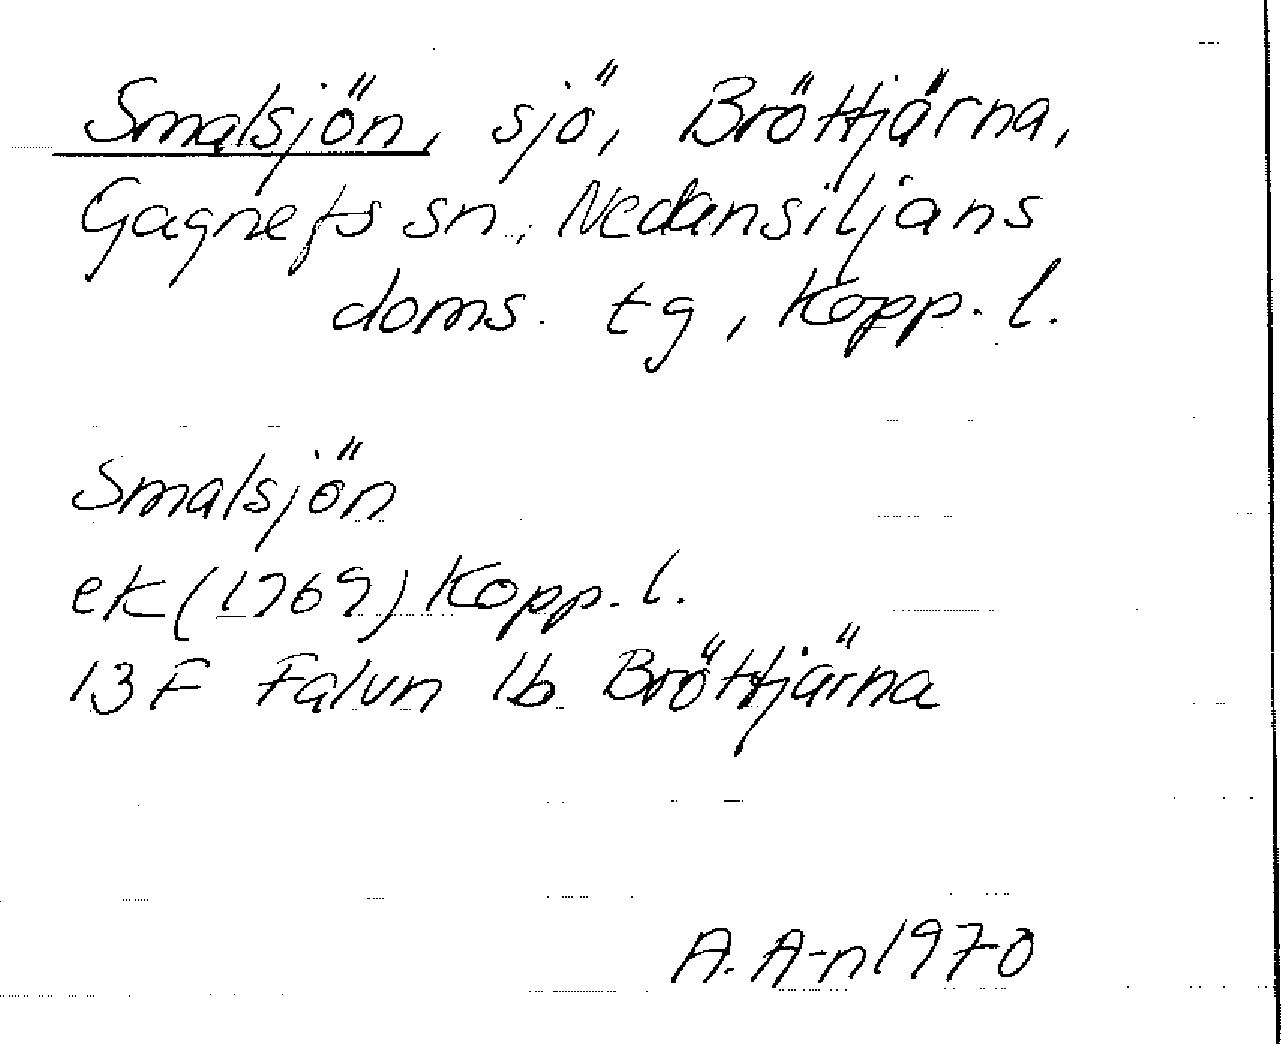 Smalsjön, sjö, Bröttjärna,
Gagnefs sn., Nedansiljans
doms. tg, Kopp. l.
Smalsjön
ek (1969) Kopp. l.
13F Falun 1b Bröttjärna
A. A-n 1970